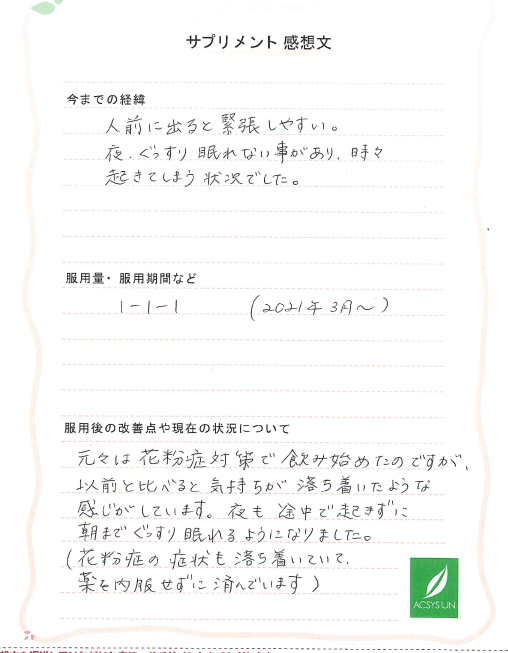 サプリメント 感想文
今までの経緯
人前に出ると緊張しやすい。
夜、ぐっすり眠れない事があり、時々
起きてしまう状況でした。
服用量・服用期間など
1-1-1 (2021年3月~)
服用後の改善点や現在の状況について
元々は花粉症対策で飲み始めたのですが、
以前と比べると気持ちが落ち着いたような
感じがしています。夜も途中で起きずに
朝までぐっすり眠れるようになりました。
(花粉症の症状も落ち着いていて、
薬を内服せずに済んでいます)
ACSYSUN